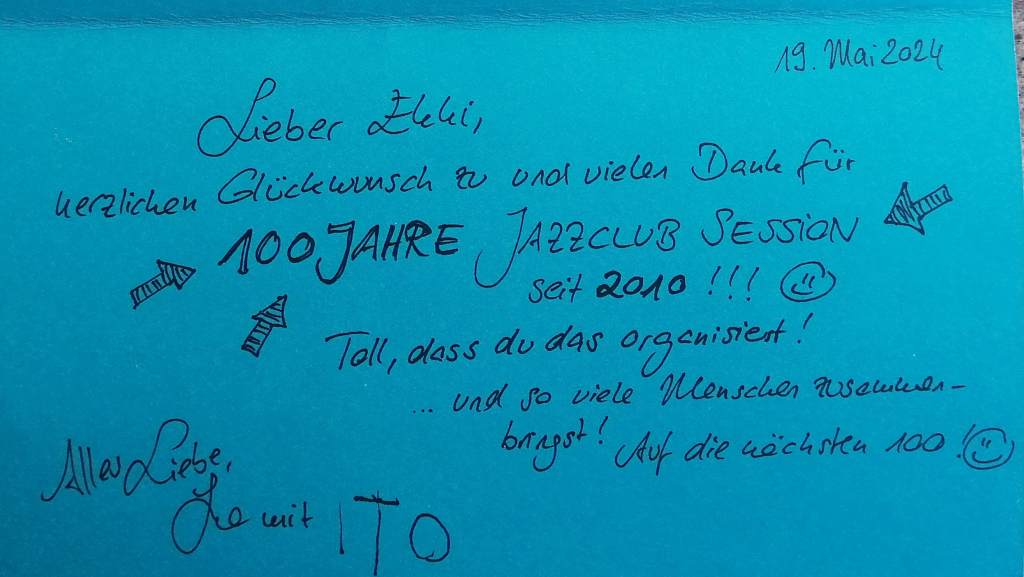 19. Mai 2024
Lieber Ekki,
herzlichen Glückwunsch zu und vielen Dank für
100 JAHRE JAZZCLUB SESSION
seit 2010 !!!
Toll, dass du das organisierst!
... und so viele Menschen zusammen-
bringst! Auf die nächsten 100!
Alles Liebe,
mit ITO